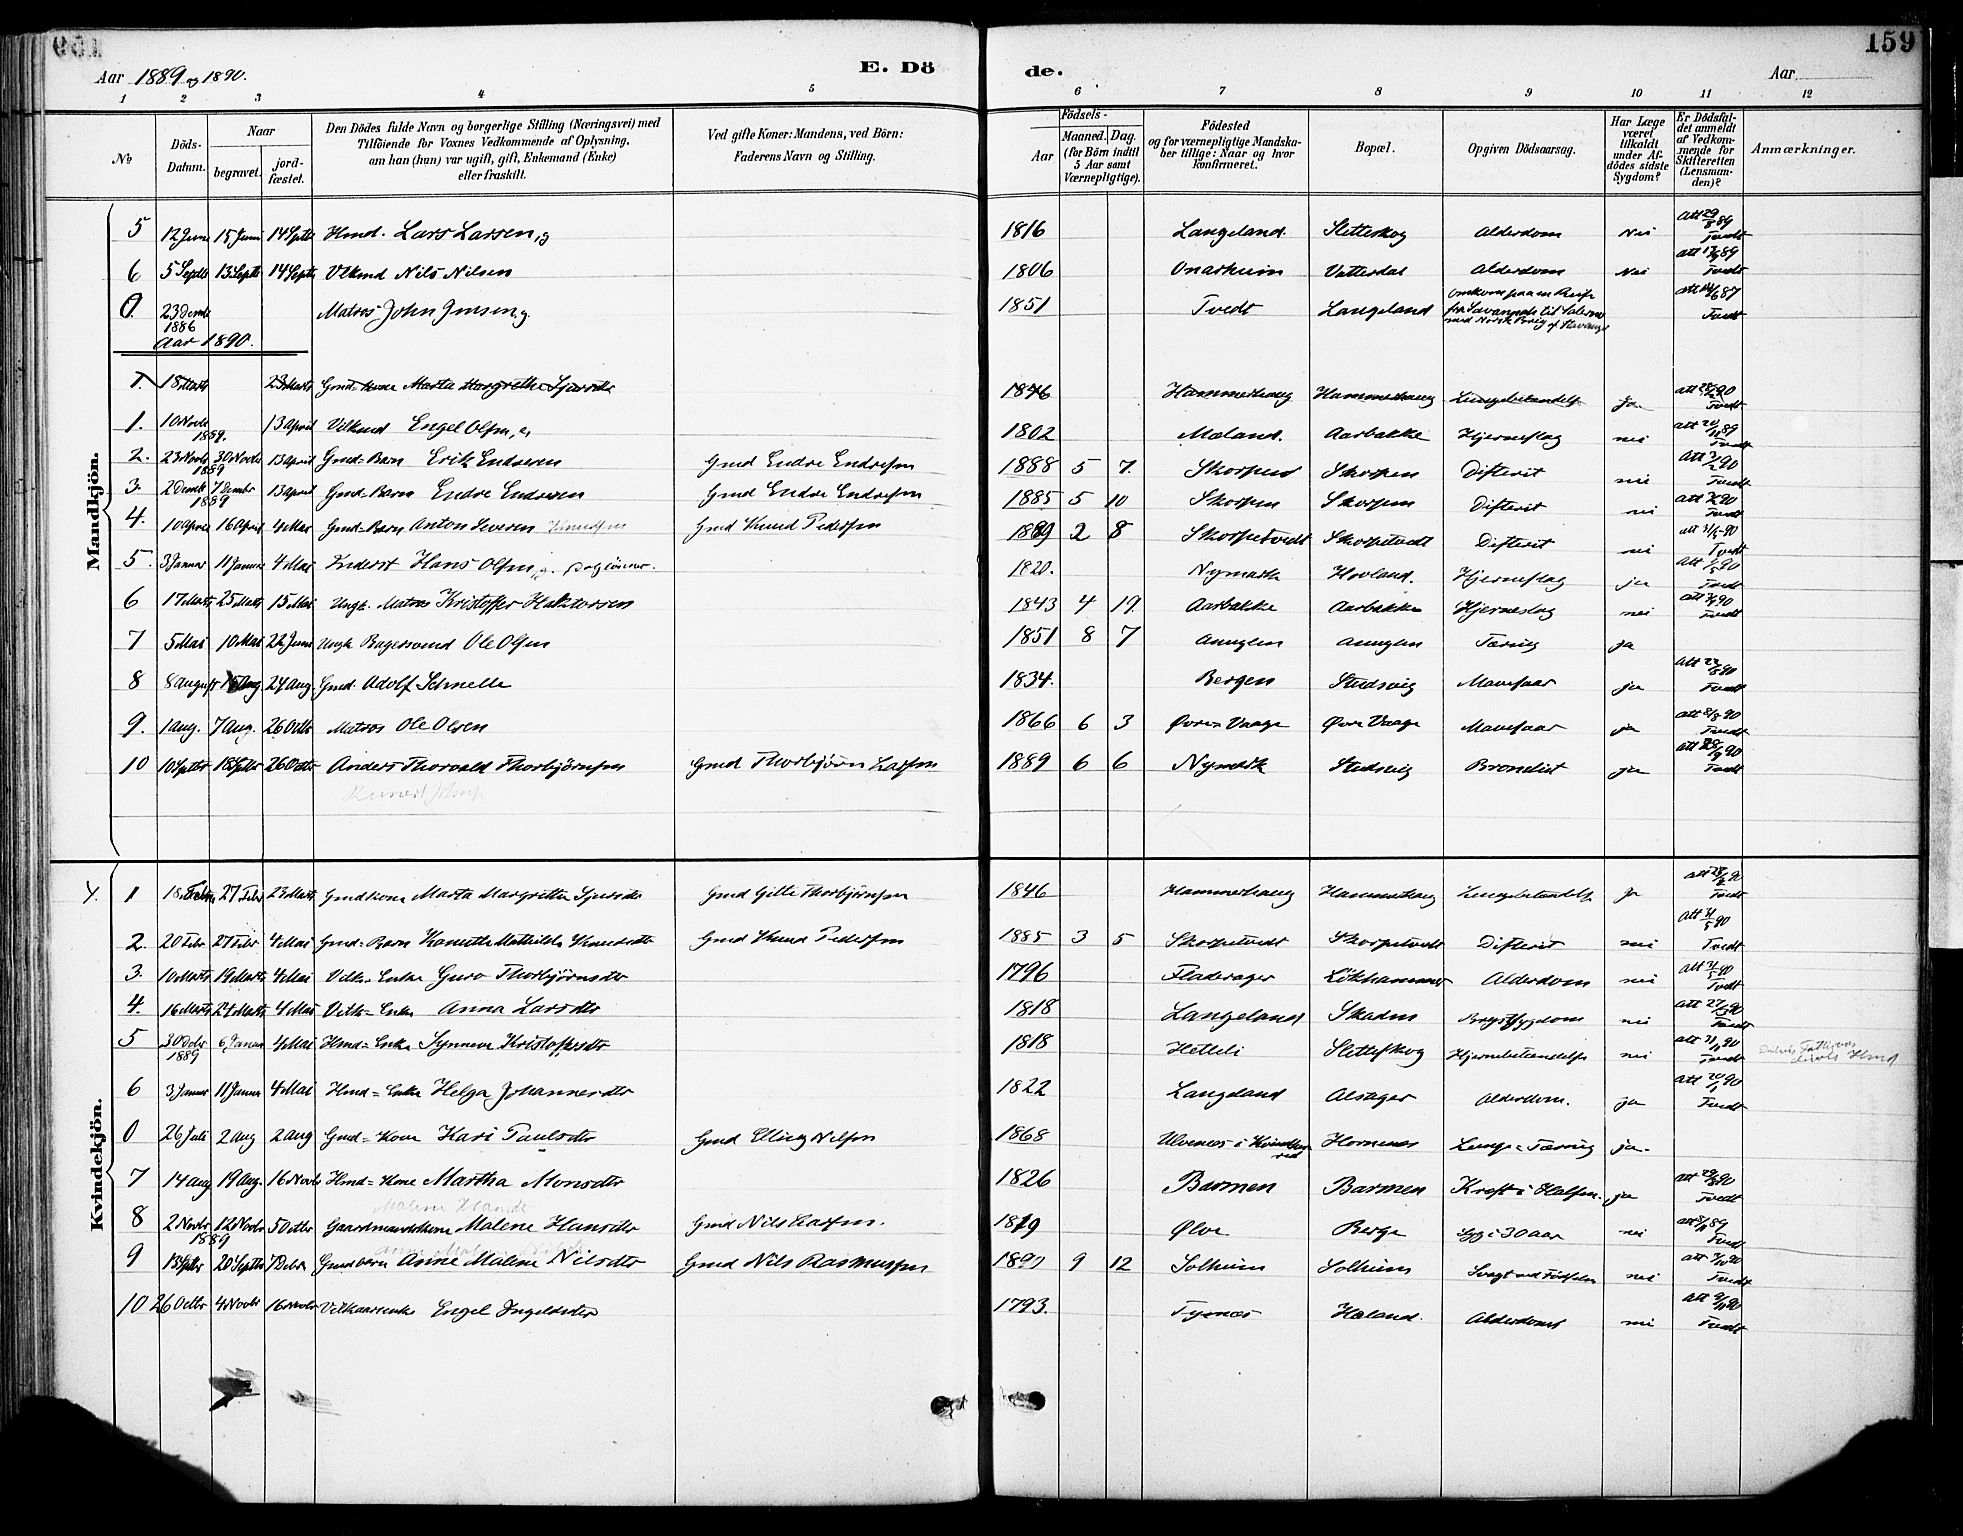 159
Aar 1889 og 1890.
E. Dö
de.
Aar
1 2 3 4 5 6 7 8 9 10 11 12
No
Döds-Datum.
Naar
begravet.
jord-fæstet.
Den Dödes fulde Navn og borgerlige Stilling (Næringsvei) med
Tilföiende for Voxnes Vedkommende af Oplysning,
om han (hun) var ugift, gift, Enkemand (Enke)
eller fraskilt.
Ved gifte Koner: Mandens, ved Börn:
Faderens Navn og Stilling.
Födsels-
Aar
Maaned. Dag.
(for Börn indtil
5 Aar samt
Værnepligtige).
Födested
og for værnepligtige Mandska-
ber tillige: Naar og hvor
konfirmeret.
Bopæl.
Opgiven Dödsaarsag.
Har Læge
været
tilkaldt
under Af-
dödes sidste
Sygdom?
Er Dödsfal-
det anmeldt
af Vedkom-
mende for
Skifteretten
(Lensman-
den)?
Anmærkninger.
Mandkjön.
5 12 Juni 15 Juni 14 Septb Hmd. Lars Larsen, g 1816 Langeland Sletteskog Alderdom Nei Att 29/8 89 Tvedt
6 5 Septb 13 Septb 14 Septb Vlkmd Nils Nilsen 1806 Onarheim Vatterdal Alderdom Nei Tvedt
0. 23 Decemb 1886 Matros John Jensen g 1851 Tvedt Langeland omkom paa en Reise fra Savannah til Tvedt
Aar 1890.
1. 18 Marts 23 Marts Gmd=kone Marta Margrethe Sjursdtr 1846 Hammerhaug Hammerhaug Lungebetændelse Ja Tvedt
1. 10 Novb 1889. 13 April Vilkmd Engel Olsen, e. 1802 Mæland. Aarbakke Hjerneslag nei Tvedt
2. 23 Novb 1889 30 Novb 13 April Gmd=Barn Erik Endresen Gmd Endre Endresen 1888 5 7. Skorpen Skorpen Difterit nei Tvedt
3. 2 Decemb 1889 7 Decembr 13 April Gmd=Barn Endre Endresen Gmd Endre Endresen 1885 5 10 Skorpen Skorpen Difterit nei Tvedt
4. 10 April 16 April 4 Mai Gmd=Barn Anton Severin Knudsen Gmd Knud Pedersen 1889 2 8 Skorpetvedt Skorpetvedt Difterit nei att 31/5 90 Tvedt
5. 3 Januar 11 Januar 4 Mai Inderst Hans Olsen, g. 1820. Nymark Hovland. Hjerneslag ja Tvedt
6 17 Marts 25 Marts 15 Mai Ungk. Matros Kristoffer Haktorsen 1843 4 19. Aarbakke Aarbakke Hjerneslag nei Tvedt
7 5 Mai 10 Mai 22 Juni Ungk Bagersvend Ole Olsen 1851 8 7 Anuglen Anuglen Tæring ja
8 8 August 24 Aug Gmd. Adolf Schnelle 1834. Bergen Studsvig Mavesaar ja Tvedt
9. 1 Aug. 7 Aug. 26 Octbr Matros Ole Olsen 1866 6 3 Övre Vaage Övre Vaage Mavesaar ja Att 8/8 90 Tvedt
10 10 Septbr 18 Septbr 26 Octbr Anders Thorvald Thorbjörnsen Gmd Thorbjörn Larsen 1889 6 6 Nymark Studsvig Bronchit ja Tvedt
Kvindekjön.
1 27 Febr 23 Marts Gmdkone Marta Margrethe Sjursdtr Gmd Gitle Thorbjörnsen 1846 Hammerhaug Hammerhaug Lungebetændelse Ja Tvedt
2. 20 Febr 27 Febr 4 Mai Gmd=Barn Kanutte Mathilde Knudsdtr Gmd Knud Pedersen 1885 3 5 Skorpetvedt Skorpetvedt Difterit nei Att 31/5 90 Tvedt
3. 10 Marts 19 Marts 4 Mai Vilk=Enke Guro Thorbjörnsdtr 1796 Fladerager Lökhammer Alderdom nei Att 31/5 90 Tvedt
4. 16 Marts 24 Marts 4 Mai Vilk=Enke Anna Larsdtr 1818 Langeland Brystsygdom nei Tvedt
5 30 Decbr 1889 6 Januar 4 Mai Hmd=Enke Synneve Kristoffersdtr 1818 Hetleli Sletteskog Hjernebetændelse nei Tvedt
6 3 Januar 11 Januar 4 Mai Hmd=Enke Helga Johannesdtr 1822 Langeland Alsager Alderdom. ja Tvedt
0 26 Juli 2 Aug 2 Aug Gmd=Kone Kari Paulsdtr Gmd Elling Nilsen 1868 Ulvenes i Kvindherred Hornenes Lunge=Tæring ja.
7 14 Aug 19 Aug. 16 Novb Hmd=Kone Martha Monsdtr 1826 Barmen Barmen Kræft i Halsen. ja Tvedt
Malene Hansdt
8 2 Novbr 1889 12 Novbr 5 Octbr Gaardmandskone Malene Hansdtr Gmd Nils Larsen. 1819 Ølve Berge Syg i 30 aar nei Tvedt
9 20 Septb Gmdbarn Anne Malene Nilsdtr Gmd Nils Rasmussen 1890 9 12 Solheim Solheim Svagt ved Födselen nei Tvedt
10 26 Octbr 4 Novb 16 Novbr Vilkaarsenke Engel Ingelsdtr 1793. Tysnæs Haland. Alderdom nei Tvedt